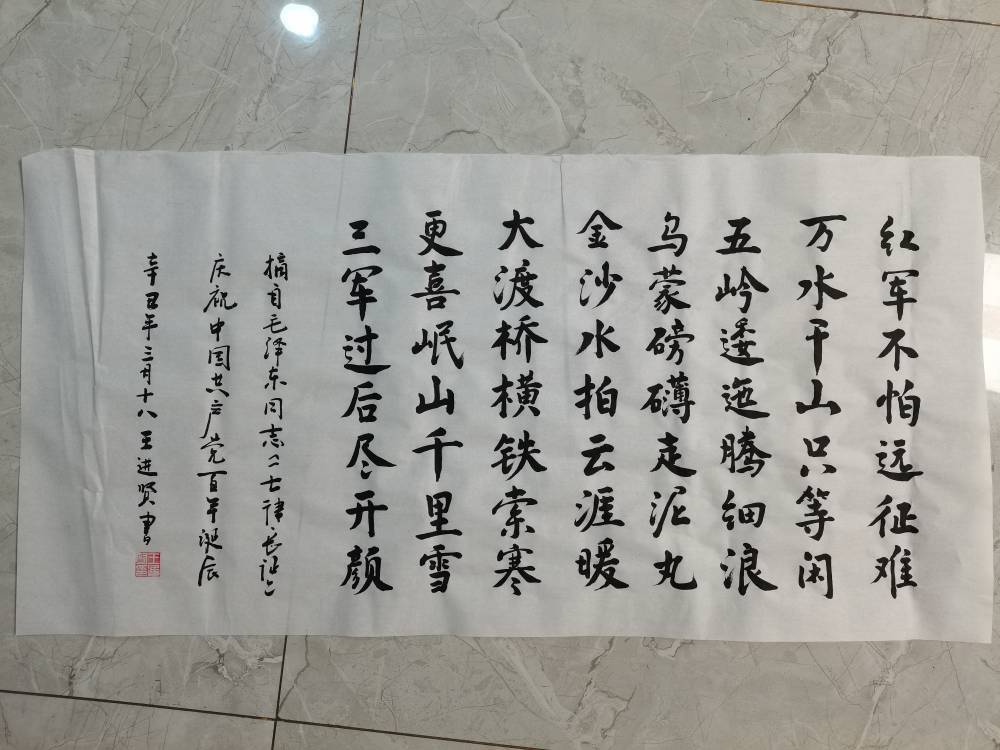 红军不怕远征难
万水千山只等闲
五岭逶迤腾细浪
乌蒙磅礴走泥丸
金沙水拍云涯暖
大渡桥横铁索寒
更喜岷山千里雪
三军过后尽开颜
摘自毛泽东同志《七律长征》
庆祝中国共产党百年诞辰
辛丑年三月十八王进贤书